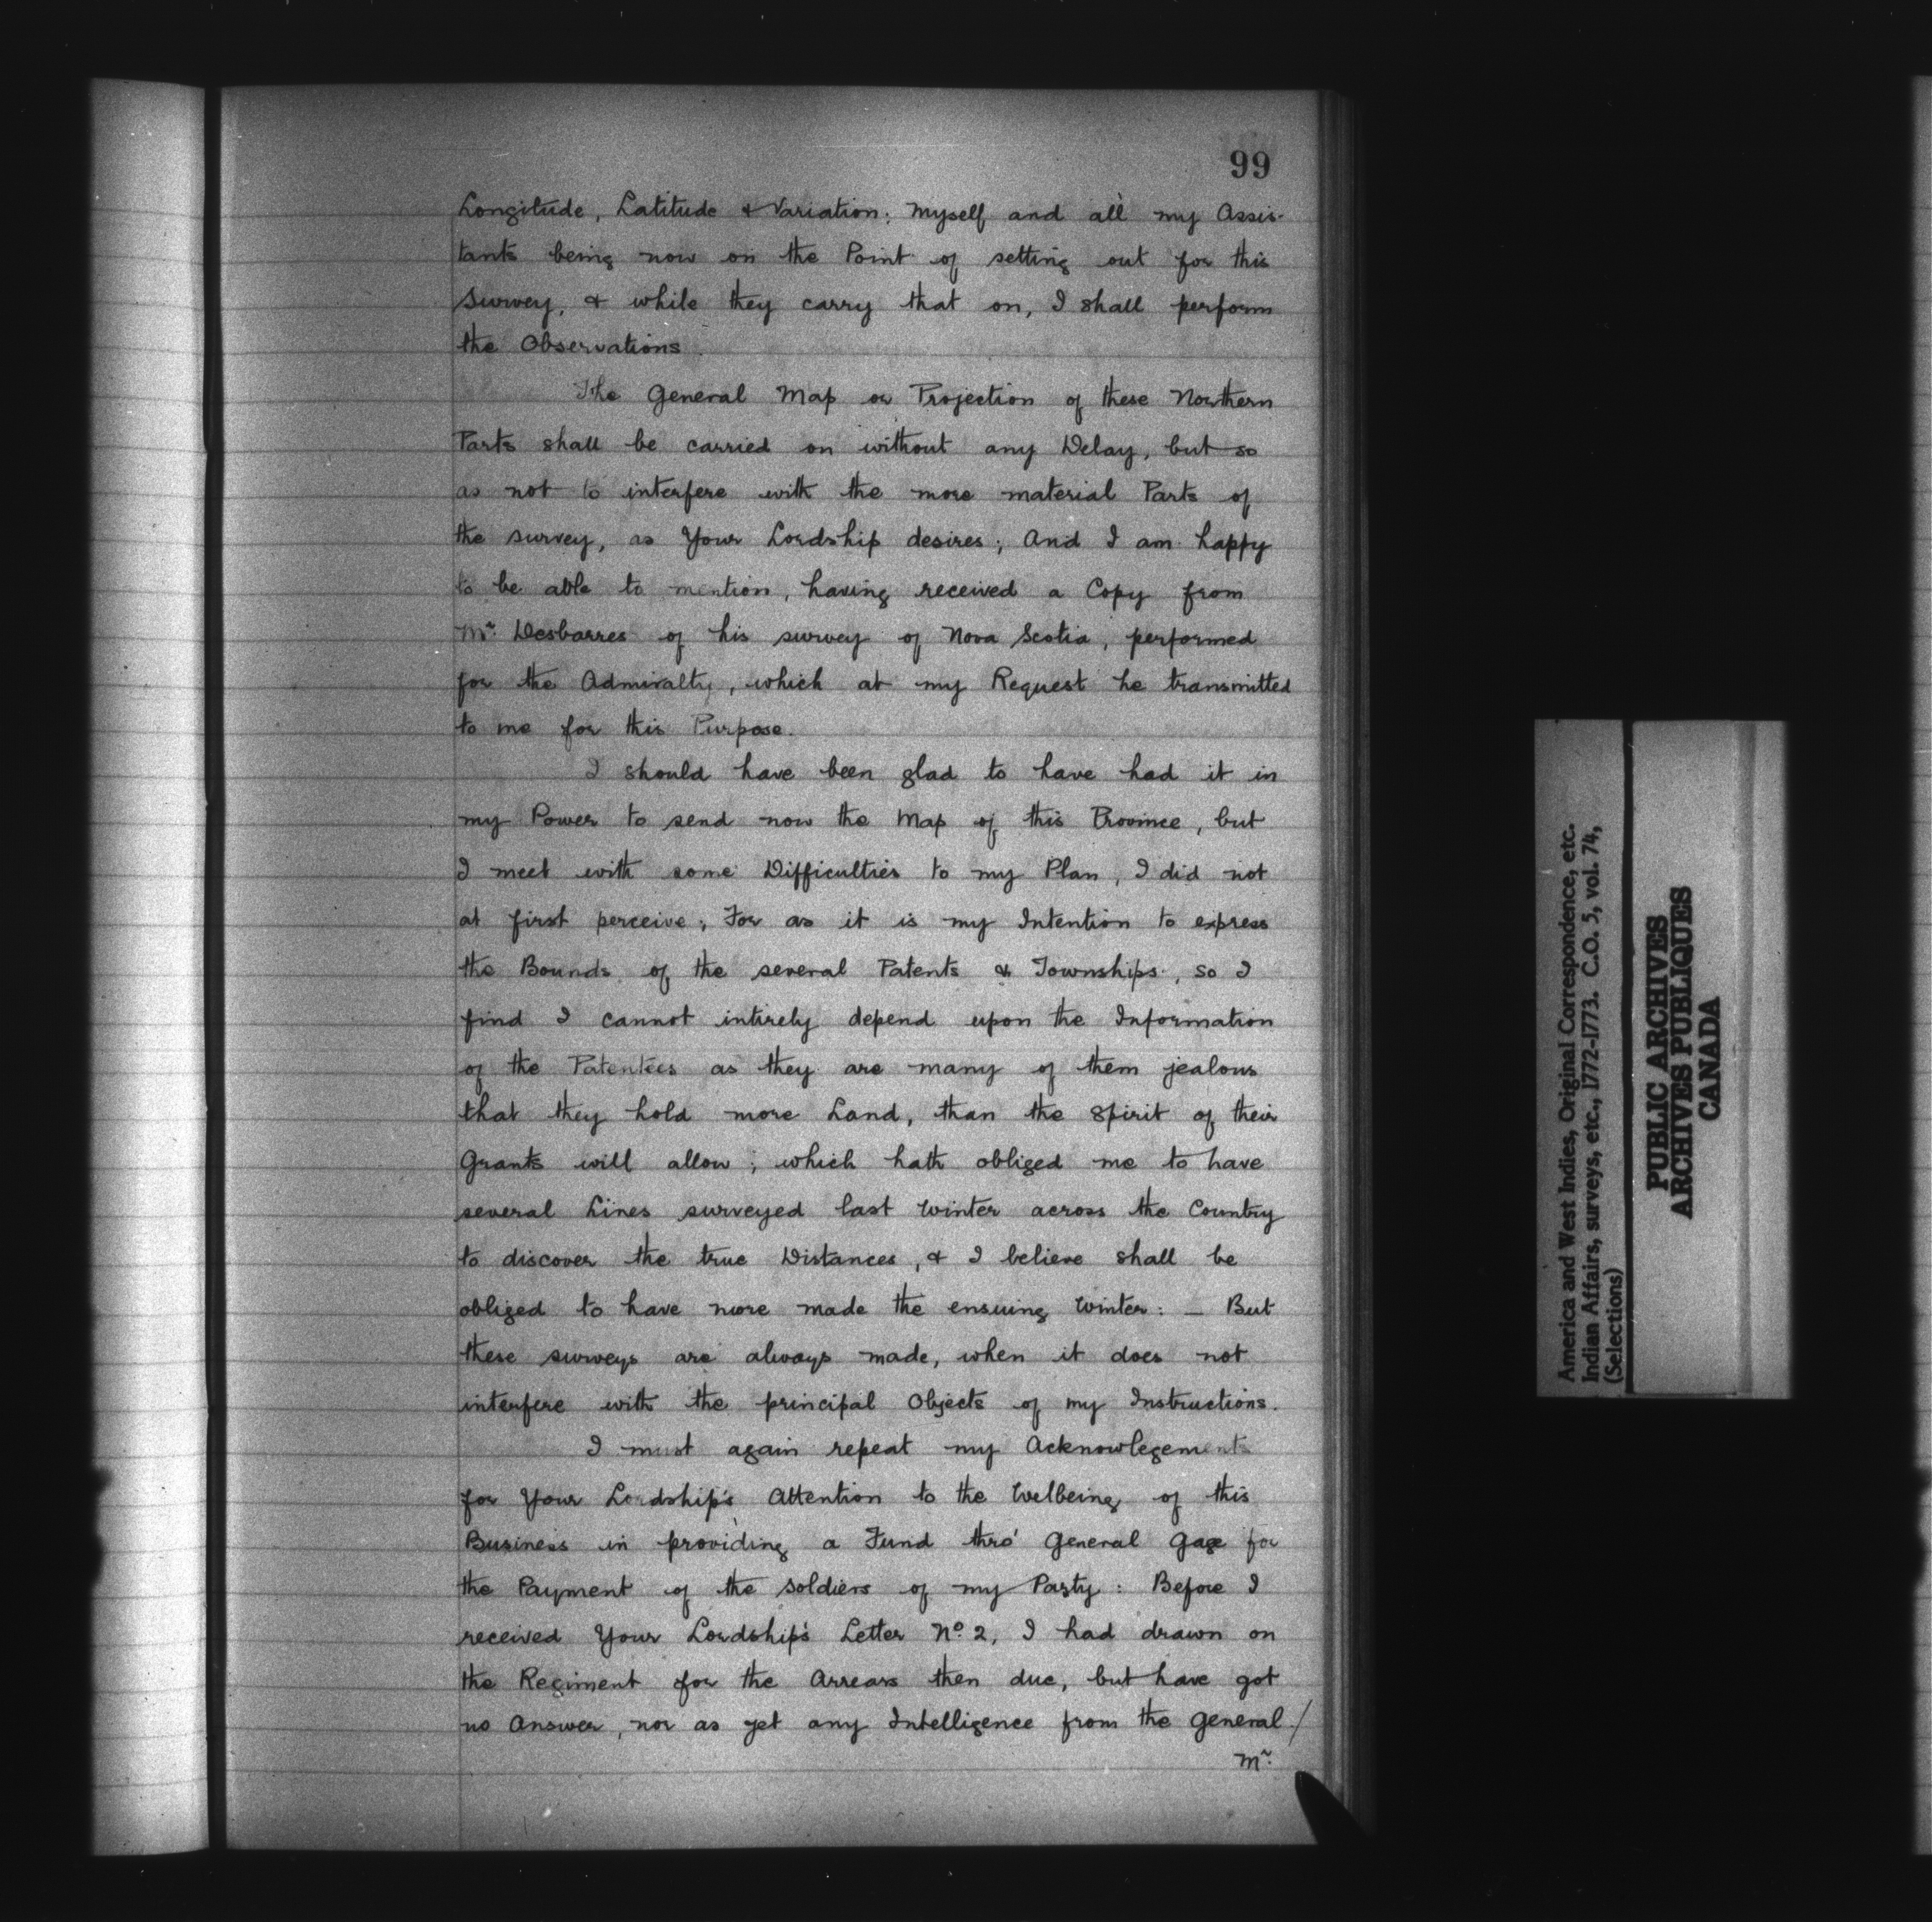 99
Longitude, Latitude & Variation; Myself and all my Assis-
tants being now on the Point of setting out for this
Survey, & while they carry that on, I shall perform
the Observations.
The General Map or Projection of these Northern
Parts shall be carried on without any Delay, but so
as not to interfere with the more material Parts of
the survey, as Your Lordship desires; And I am happy
to be able to mention, having received a Copy from
Mr. Desbarres of his survey of Nova Scotia, performed
for the Admiralty, which at my Request he transmitted
to me for this Purpose.
I should have been glad to have had it in
my Power to send now the Map of this Province, but
I meet with some Difficulties to my Plan, I did not
at first perceive; For as it is my Intention to express
the Bounds of the several Patents & Townships, so I
find I cannot intirely depend upon the Information
of the Patentees as they are many of them jealous
that they hold more Land, than the Spirit of their
Grants will allow; which hath obliged me to have
several Lines surveyed last Winter across the Country
to discover the true Distances, & I believe shall be
obliged to have more made the ensuing Winter: — But
these surveys are always made, when it does not
interfere with the principal Objects of my Instructions.
I must again repeat my Acknowlegements
for Your Lordship's Attention to the Welbeing of this
Business in providing a Fund thro' General Gage for
the Payment of the Soldiers of my Party: Before I
received Your Lordship's Letter No. 2, I had drawn on
the Regiment for the Arrears then due, but have got
no Answer, nor as yet any Intelligence from the General./
Mr.
America and West Indies, Original Correspondence, etc.
Indian Affairs, surveys, etc., 1772-1773. C.O. 5, vol. 74,
(Selections)
PUBLIC ARCHIVES
ARCHIVES PUBLIQUES
CANADA